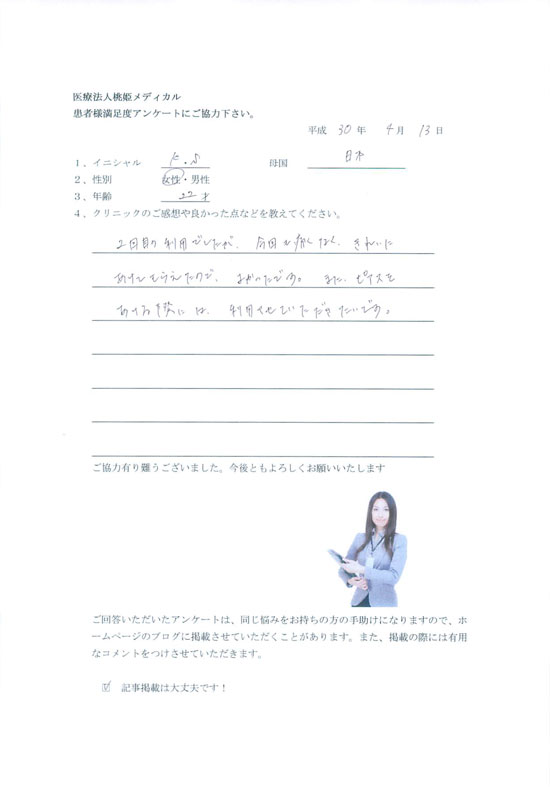 医療法人桃姫メディカル
患者様満足度アンケートにご協力下さい。
平成 30 年 4 月 13 日
1、イニシャル K.S 母国 日本
2、性別 女性・男性
3、年齢 22才
4、クリニックのご感想や良かった点などを教えてください。
2回目の利用でしたが、今回も痛くなく、きれいに
あけてもらえたので、よかったです。また、ピアスを
あける時には、利用させていただきたいです。
ご協力有り難うございました。今後ともよろしくお願いいたします
ご回答いただいたアンケートは、同じ悩みをお持ちの方の手助けになりますので、ホ
ームページのブログに掲載させていただくことがあります。また、掲載の際には有用
なコメントをつけさせていただきます。
☑ 記事掲載は大丈夫です！